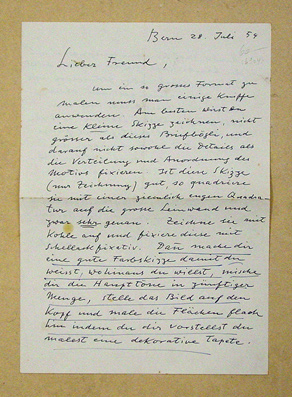 Bern 28. Juli 54
Lieber Freund,
um ein so grosses Format zu
malen muss man einige Kniffe
anwenden. Am besten wirst Du
eine kleine Skizze zeichnen, nicht
grösser als dieses Briefbögli, und
darauf nicht sowohl die Details als
die Verteilung und Anordnung des
Motivs fixieren. Ist diese Skizze
(nur Zeichnung) gut, so quadriere
sie mit einer ziemlich engen Quadra-
tur auf die grosse Leinwand und
zwar sehr genau. Zeichne sie mit
Kohle auf und fixiere diese mit
Schellackfixativ. Dan mache dir
eine gute Farbskizze damit du
weisst, wohinaus du willst, mische
dir die Haupttöne in
Menge, stelle das Bild auf den
Kopf und male die Flächen flach
hin indem du dir vorstellst du
malest eine dekorative Tapete.